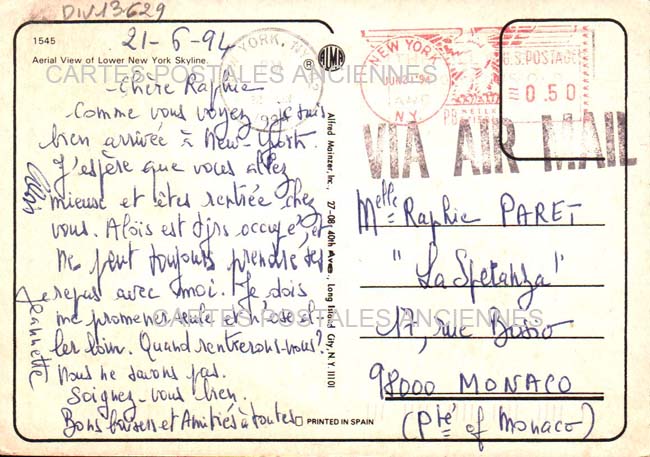 DIV13629
1545
Aerial View of Lower New York Skyline.
21-6-94
Chère Raphie
Comme vous voyez je suis
bien arrivée à New-York.
J'espère que vous allez
mieuse et êtes rentrée chez
vous. Aloïs est tjrs occupé, et
ne peut toujours prendre ses
repas avec moi. Je dois
me promener seule et j'ose al-
ler loin. Quand rentrerons-nous?
Nous ne savons pas.
Soignez-vous bien.
Bons baisers et Amitiés à toutes
Jeannette
Aloïs
® 
Alfred Mainzer, Inc., 27-08 40th Ave., Long Island City, N.Y. 11101
PRINTED IN SPAIN
YORK, NY
NEW YORK
JUN 21 '94
N.Y.
U.S. POSTAGE
0.50
VIA AIR MAIL
Melle Raphie PARET
"La Speranza"
17, rue Bosio
98000 MONACO
(Pté of Monaco)
CARTES POSTALES ANCIENNES
CARTES POSTALES ANCIENNES